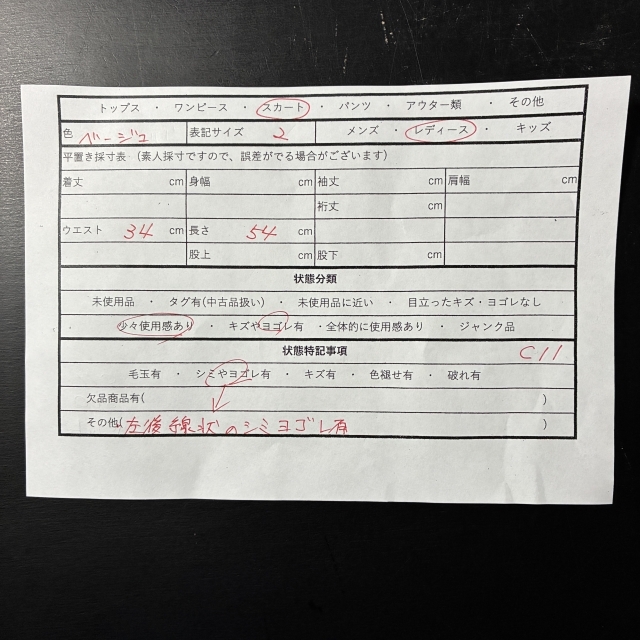 トップス ・ ワンピース ・ スカート ・ パンツ ・ アウター類 ・ その他
色 ベージュ 表記サイズ 2 メンズ ・ レディース ・ キッズ
平置き採寸表 （素人採寸ですので、誤差がでる場合がございます）
着丈 cm 身幅 cm 袖丈 cm 肩幅 cm
裄丈 cm
ウエスト 34 cm 長さ 54 cm
股上 cm 股下 cm
状態分類
未使用品 ・ タグ有(中古品扱い) ・ 未使用品に近い ・ 目立ったキズ・ヨゴレなし
少々使用感あり ・ キズやヨゴレ有 ・全体的に使用感あり ・ ジャンク品
状態特記事項 C11
毛玉有 ・ シミやヨゴレ有 ・ キズ有 ・ 色褪せ有 ・ 破れ有
欠品商品有( )
その他(左後線状のシミヨゴレ有 )